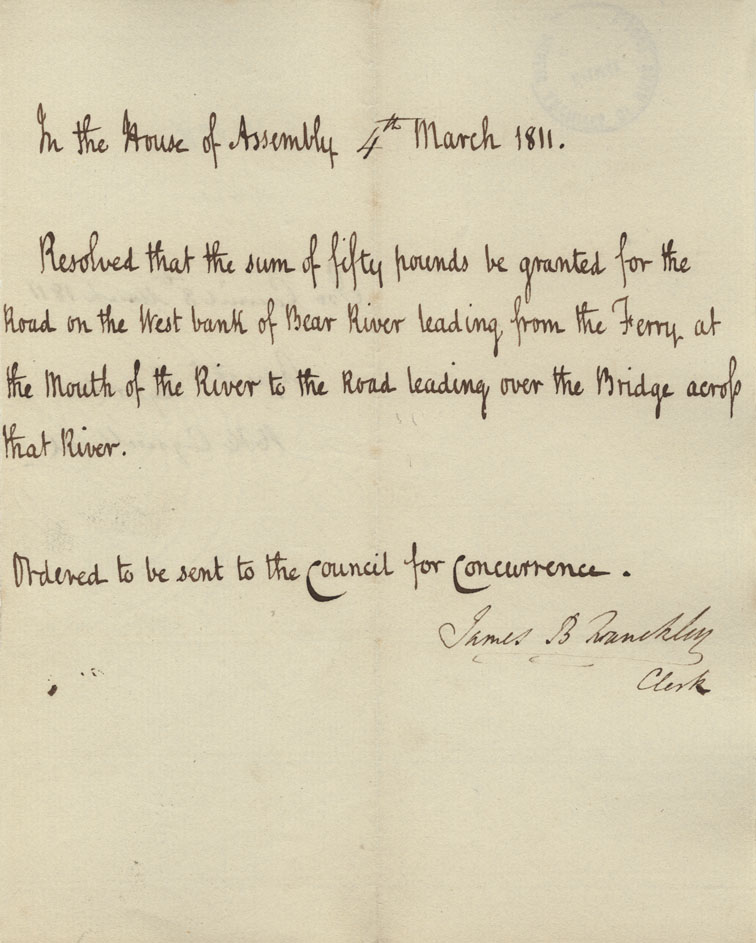 In the House of Assembly 4th March 1811.
Resolved that the sum of fifty pounds be granted for the
Road on the West bank of Bear River leading from the Ferry at
the Mouth of the River to the Road leading over the Bridge acroſs
that River.
Ordered to be sent to the Council for Concurrence.
James B
Clerk